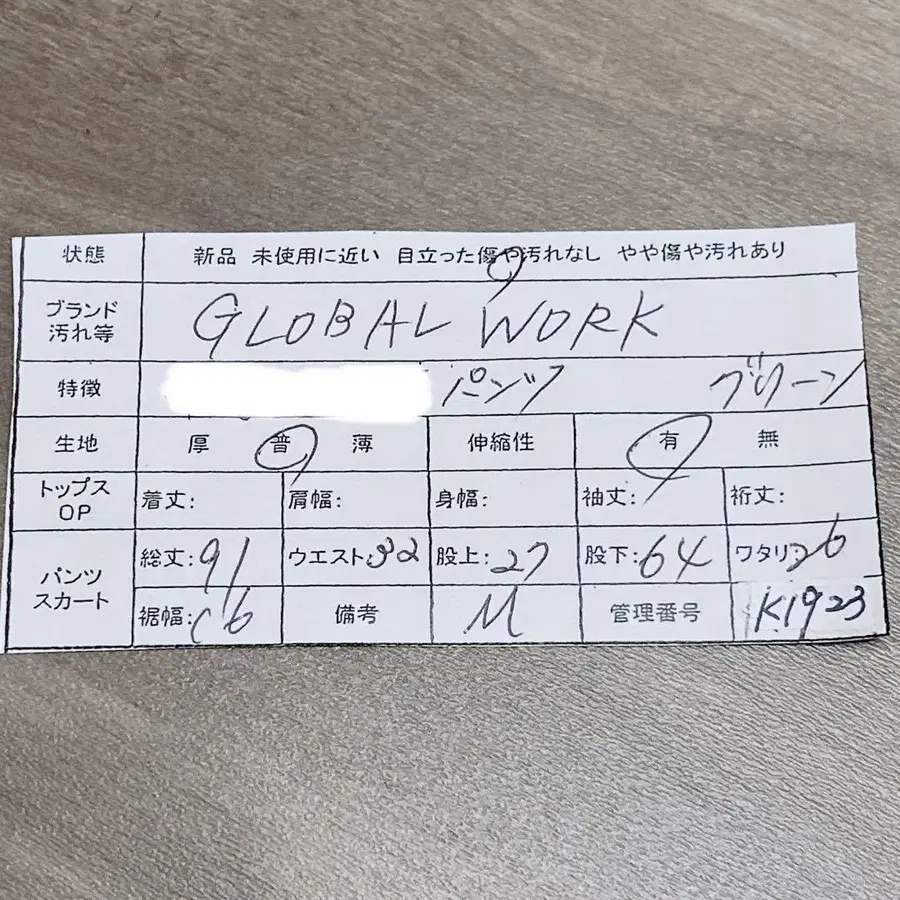 状態 新品 未使用に近い 目立った傷や汚れなし やや傷や汚れあり
ブランド
汚れ等 GLOBAL WORK
特徴 パンツ グリーン
生地 厚 普 薄 伸縮性 有 無
トップス
OP 着丈: 肩幅: 身幅: 袖丈: 裄丈:
パンツ
スカート 総丈:91 ウエスト:32 股上:27 股下:64 ワタリ:26
裾幅:16 備考 M 管理番号 K1923